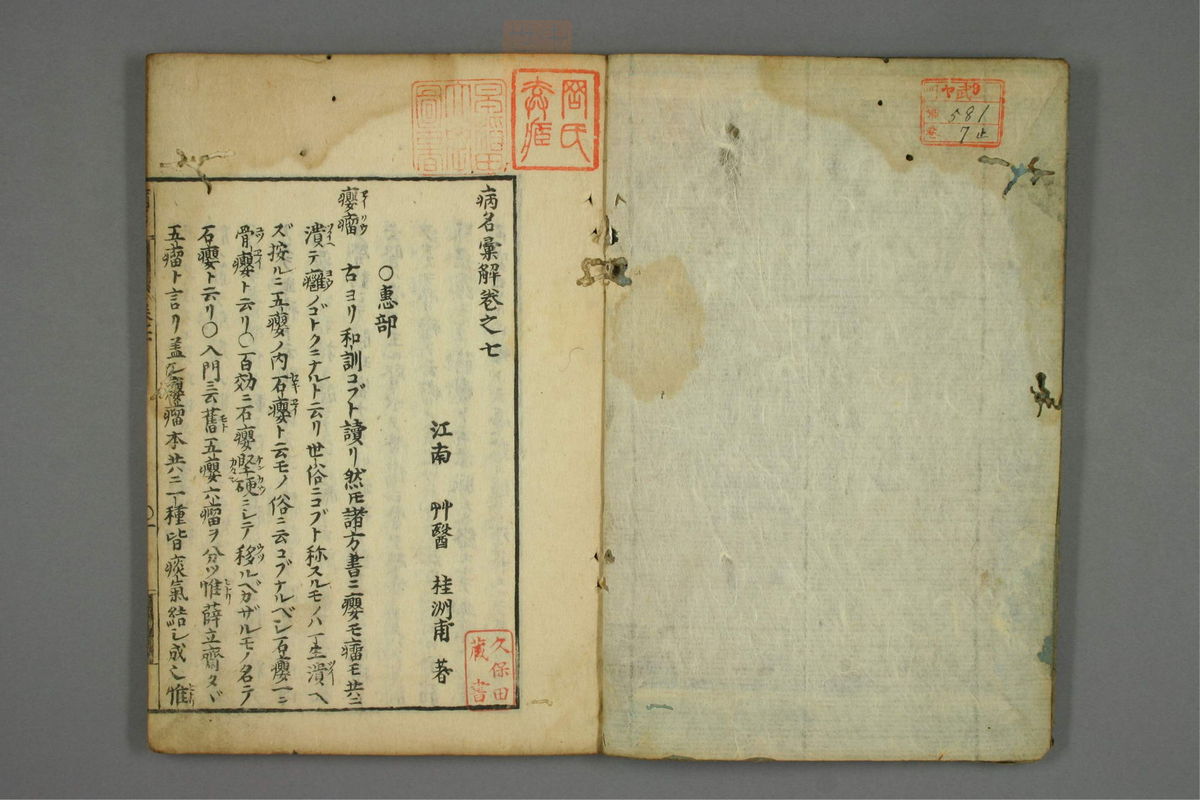 581
7止
岡氏
久保田
蔵書
病名彙解卷之七
江南 艸醫 桂洲甫 著
○惠部
癭瘤 古ヨリ和訓コブト讀リ然モ諸方書ニ癭モ瘤モ共ニ
潰テ癰ノゴトクニナルト云リ世俗ニコブト称スルモノハ一生潰ヘ
ズ按ルニ五癭ノ内石癭ト云モノ俗ニ云コブナルベシ石癭一ニ
骨癭ト云リ○百効ニ石癭堅硬ニシテ移ルベカザルモノ名テ
石癭ト云リ○入門ニ云舊五癭六瘤ヲ分ツ惟薛立齋タヾ
五瘤ト言リ盖シ癭瘤本共ニ一種皆痰氣結シ成ス惟